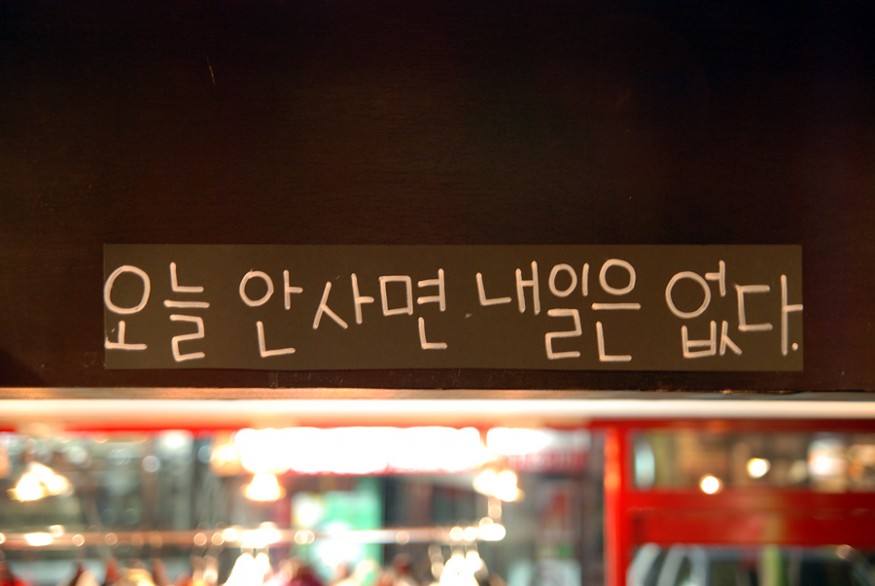 오늘 안 사면 내일은 없다.